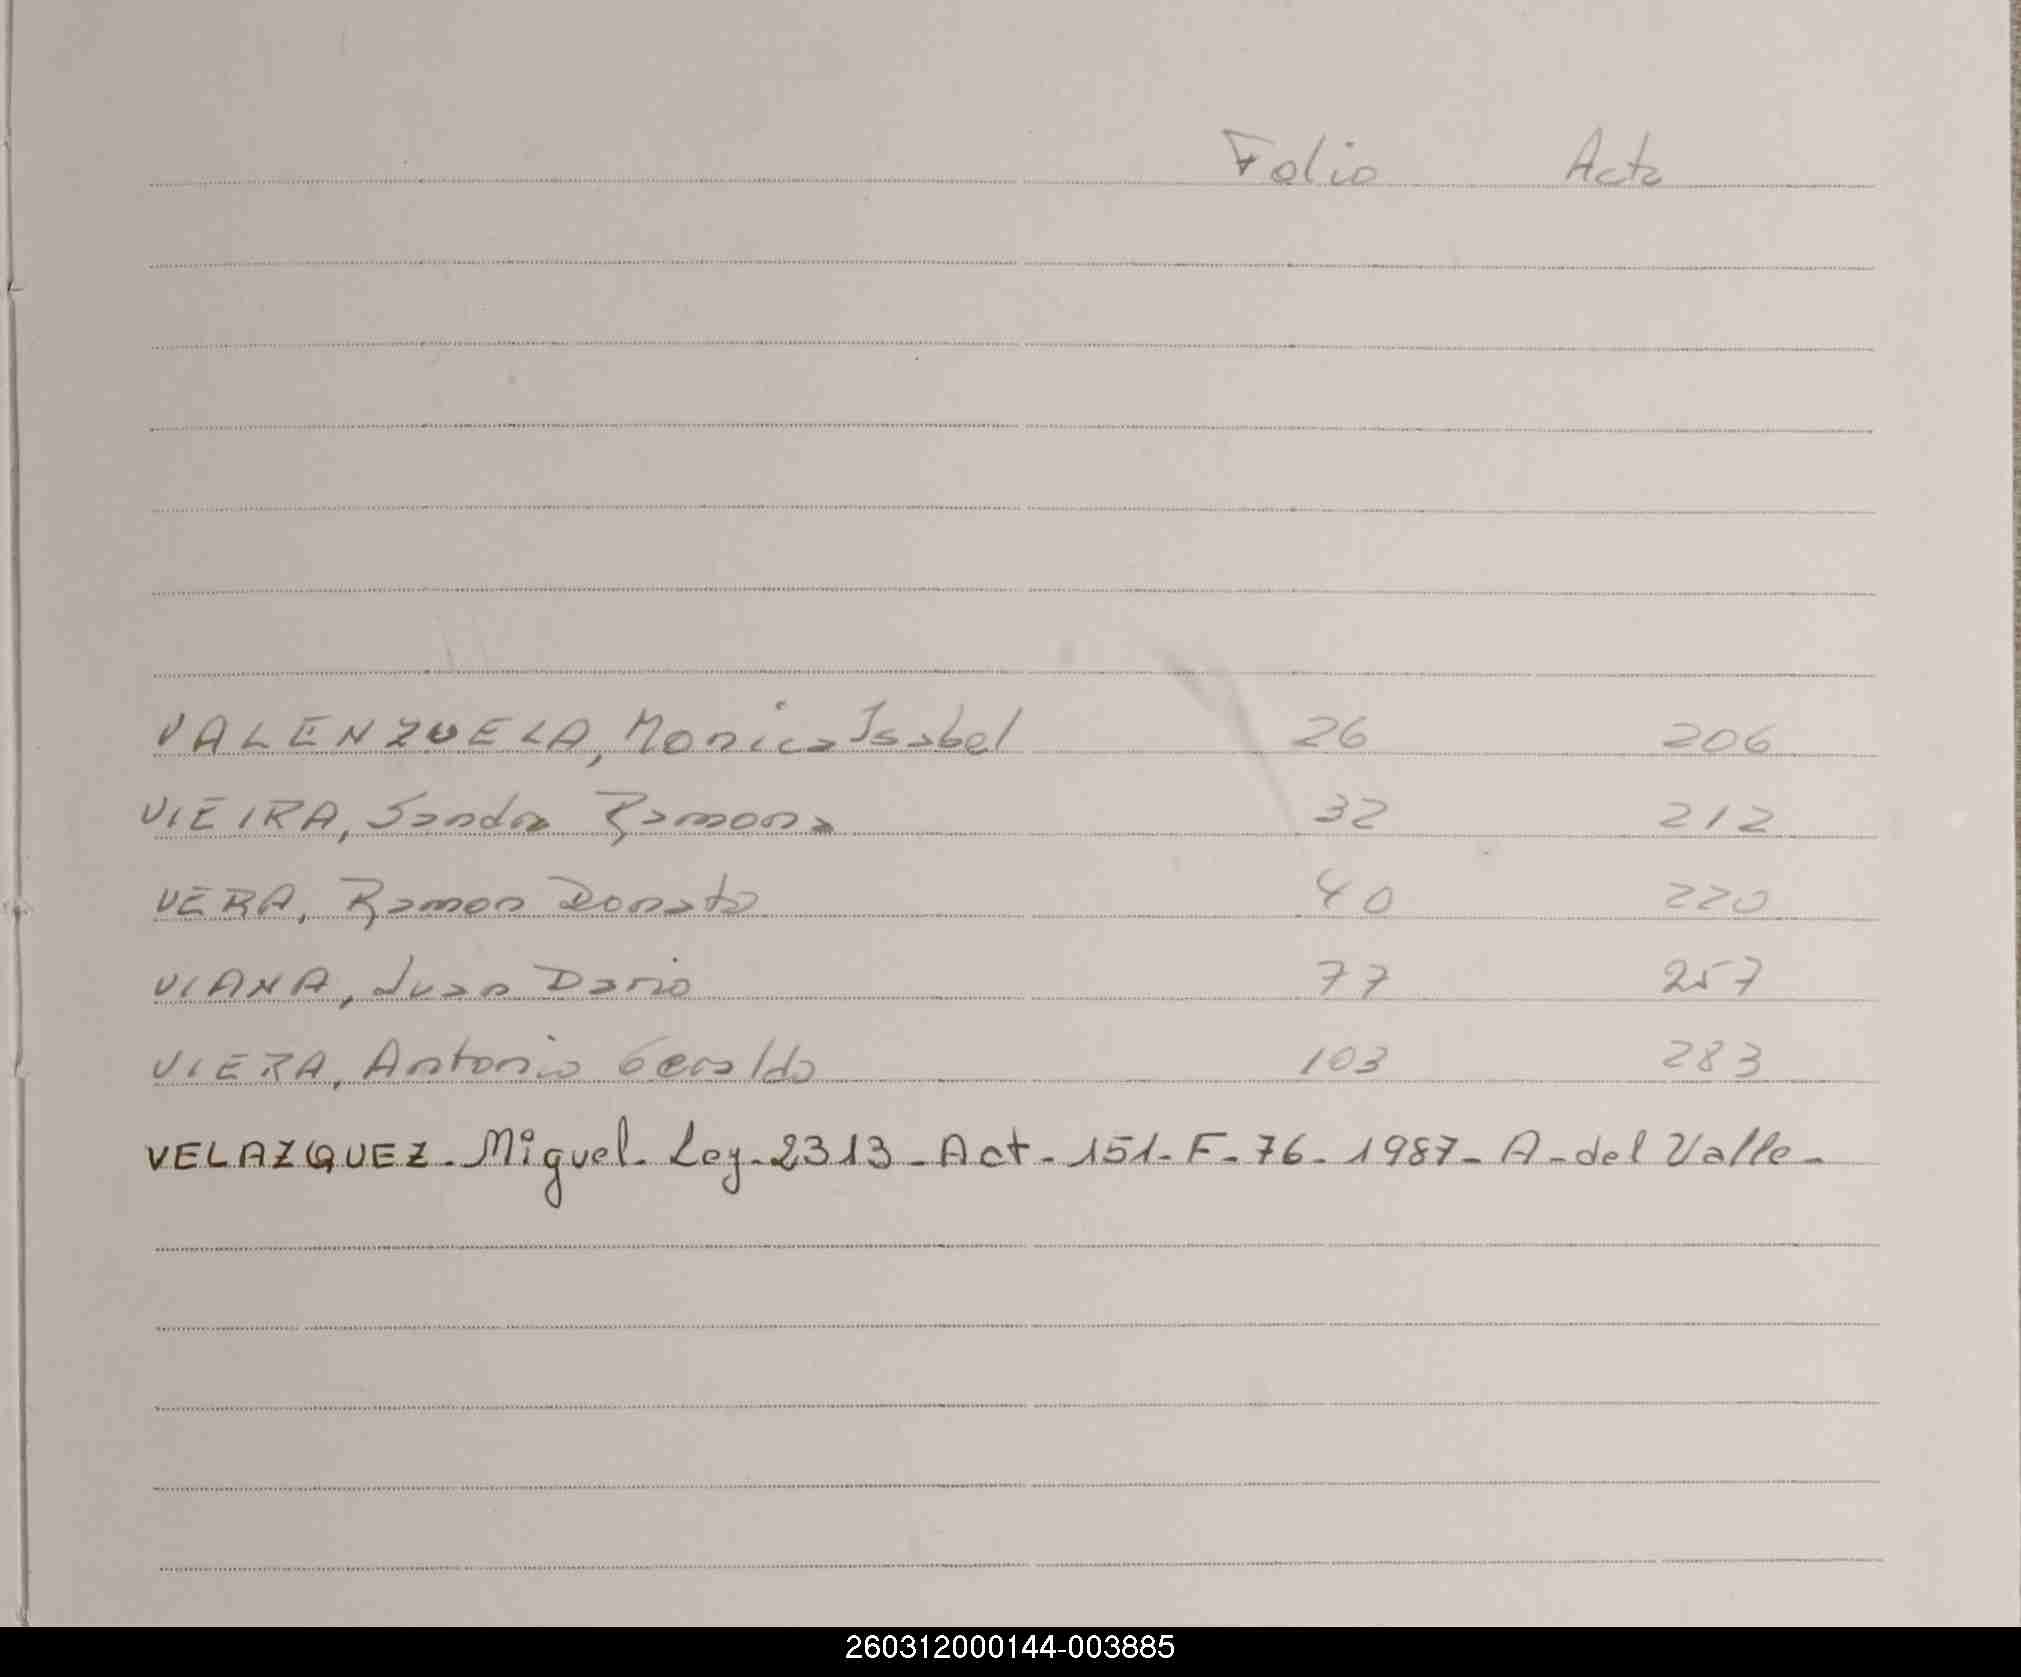 Folio Acta
VALENZUELA, Monica Isabel 26 206
VIEIRA, Sandra Ramona 32 212
VERA, Ramon Donato 40 220
VIANA, Juan Dario 77 257
VIERA, Antonio Geraldo 103 283
VELAZQUEZ- Miguel- Ley-2313-Act-151-F-76-1987-A-del Valle-
260312000144-003885